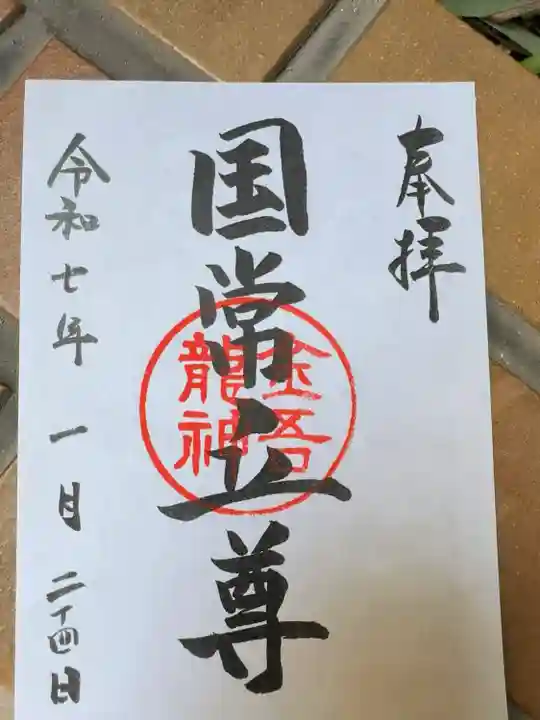 奉拝
国常立尊
金吾龍神
令和七年 一月 二十四日